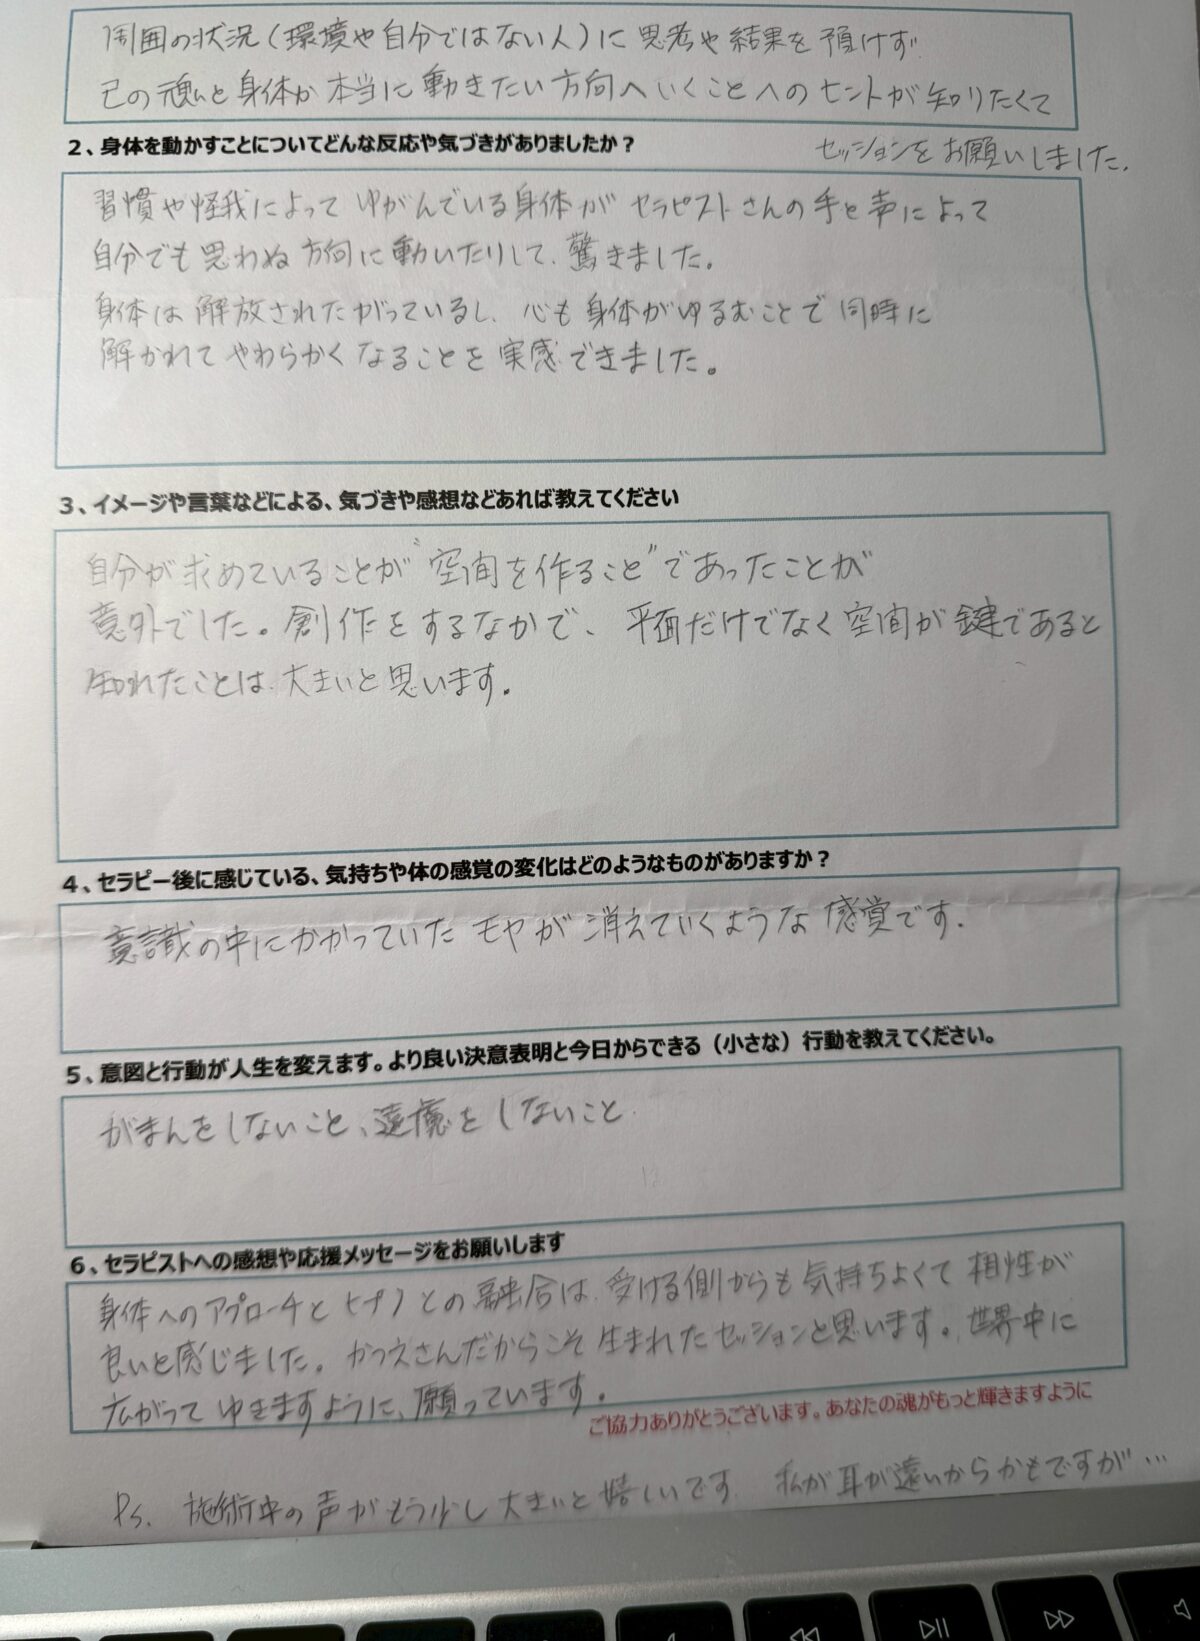 周囲の状況（環境や自分ではない人）に思考や結果を預けず
己の魂と身体が本当に動きたい方向へいくことへのヒントが知りたくて
セッションをお願いしました.
2、身体を動かすことについてどんな反応や気づきがありましたか？
習慣や怪我によってゆがんでいる身体がセラピストさんの手と声によって
自分でも思わぬ方向に動いたりして、驚きました。
身体は解放されたがっているし、心も身体がゆるむことで同時に
解かれてやわらかくなることを実感できました。
3、イメージや言葉などによる、気づきや感想などあれば教えてください
自分が求めていることが“空間を作ること”であったことが
意外でした。創作をするなかで、平面だけでなく空間が鍵であると
知れたことは、大きいと思います。
4、セラピー後に感じている、気持ちや体の感覚の変化はどのようなものがありますか？
意識の中にかかっていたモヤが消えていくような感覚です.
5、意図と行動が人生を変えます。より良い決意表明と今日からできる（小さな）行動を教えてください。
がまんをしないこと、遠慮をしないこと
6、セラピストへの感想や応援メッセージをお願いします
身体へのアプローチとヒプノとの融合は、受ける側からも気持ちよくて相性が
良いと感じました。かつえさんだからこそ生まれたセッションと思います。世界中に
広がってゆきますように、願っています。
ご協力ありがとうございます。あなたの魂がもっと輝きますように
Ps. 施術中の声がもう少し大きいと嬉しいです 私が耳が遠いからかもですが…